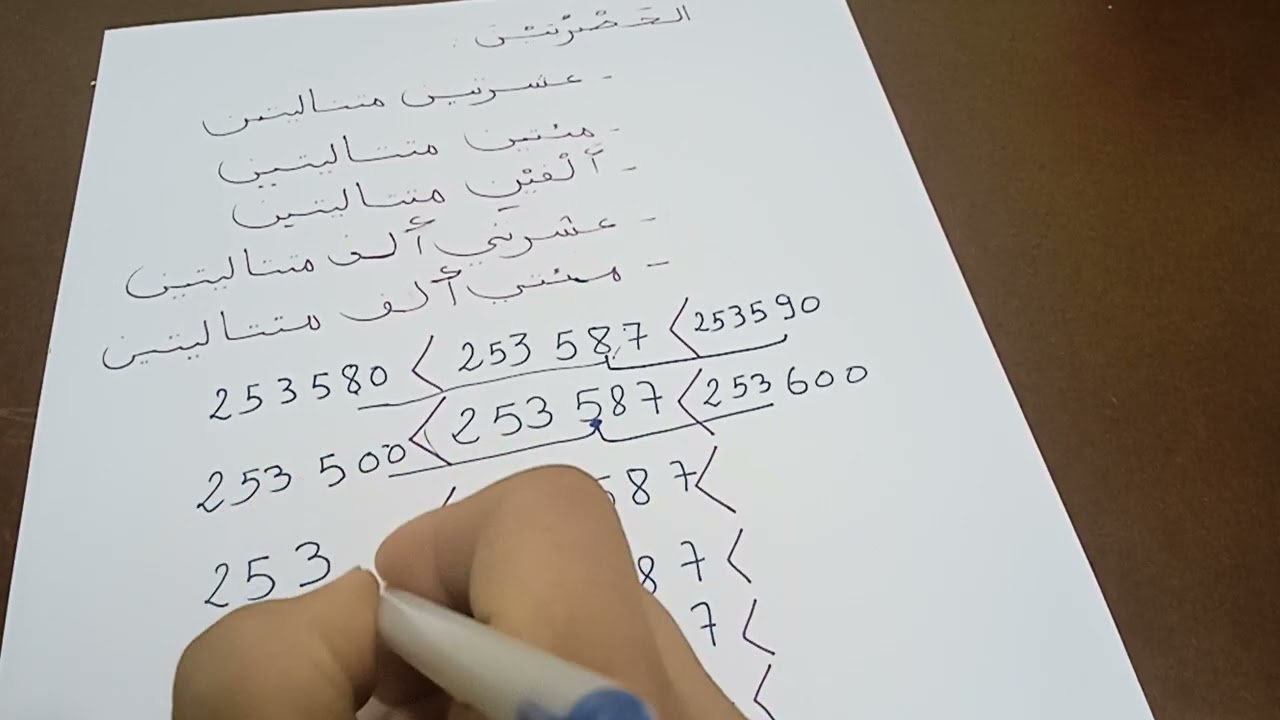 الحَصْرُ بَيْنَ :
- عشرتين متتاليتين
- مئتين متتاليتين
- ألْفَيْنِ متتاليتين
- عشرتي ألف متتاليتين
- مئتي ألف متتاليتين
253580 < 253 587 < 253590
253 500 < 253 587 < 253 600
587 <
253 87 <
7 <
<